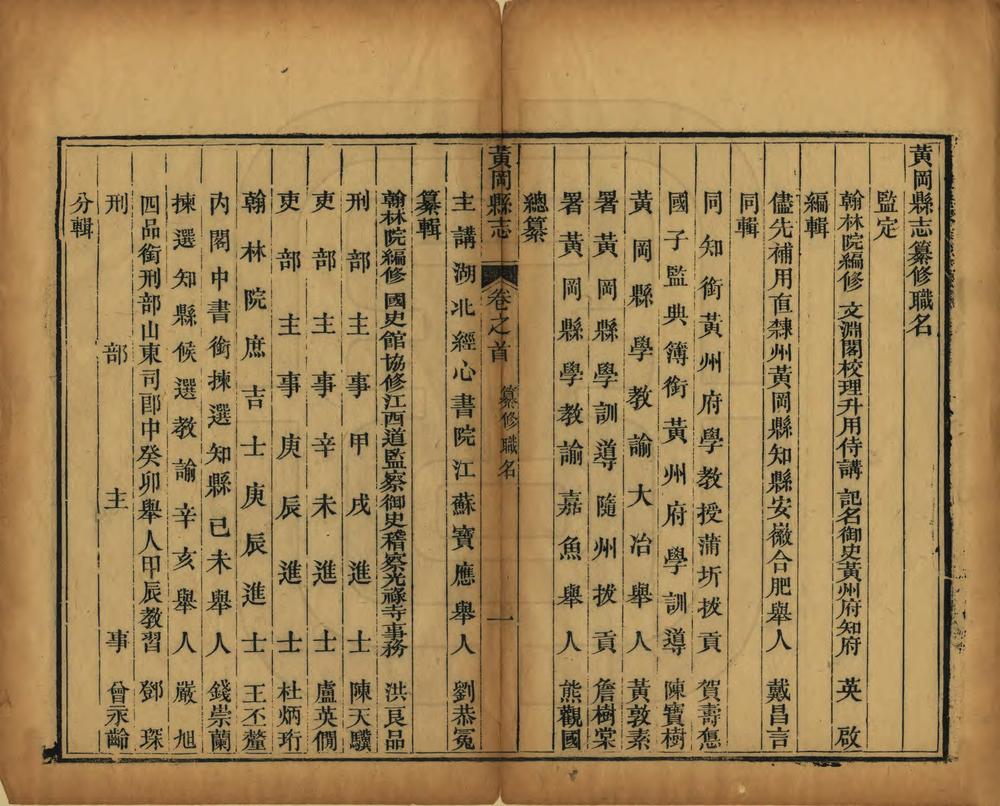 黃岡縣志纂修職名
監定
翰林院編修 文淵閣校理升用侍講 記名御史黃州府知府 英啟
編輯
儘先補用直隸州黃岡縣知縣安徽合肥舉人 戴昌言
同輯
同知銜黃州府學教授蒲圻拔貢 賀壽慈
國子監典簿銜黃州府學訓導 陳寶樹
黃岡縣學教諭大冶舉人 黃敦素
署黃岡縣學訓導隨州拔貢 詹樹棠
署黃岡縣學教諭嘉魚舉人 熊觀國
總纂
主講湖北經心書院江蘇寶應舉人 劉恭冕
黃岡縣志 卷之首 纂修職名 一
纂輯
翰林院編修 國史館協修江西道監察御史稽察光祿寺事務 洪良品
刑部主事甲戌進士 陳天驥
吏部主事辛未進士 盧英僩
吏部主事庚辰進士 杜炳珩
翰林院庶吉士庚辰進士 王丕釐
內閣中書銜揀選知縣己未舉人 錢崇蘭
揀選知縣候選教諭辛亥舉人 嚴旭
四品銜刑部山東司郎中癸卯舉人甲辰教習 鄧琛
刑部主事 曾承齡
分輯